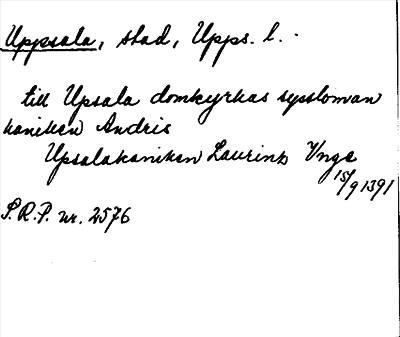 Uppsala, stad, Upps. l.
till Upsala domkyrkas syssloman
kaniken Andris
Upsalakaniken Laurinz Vnge
15/9 1391
S.R.P. nr. 2576